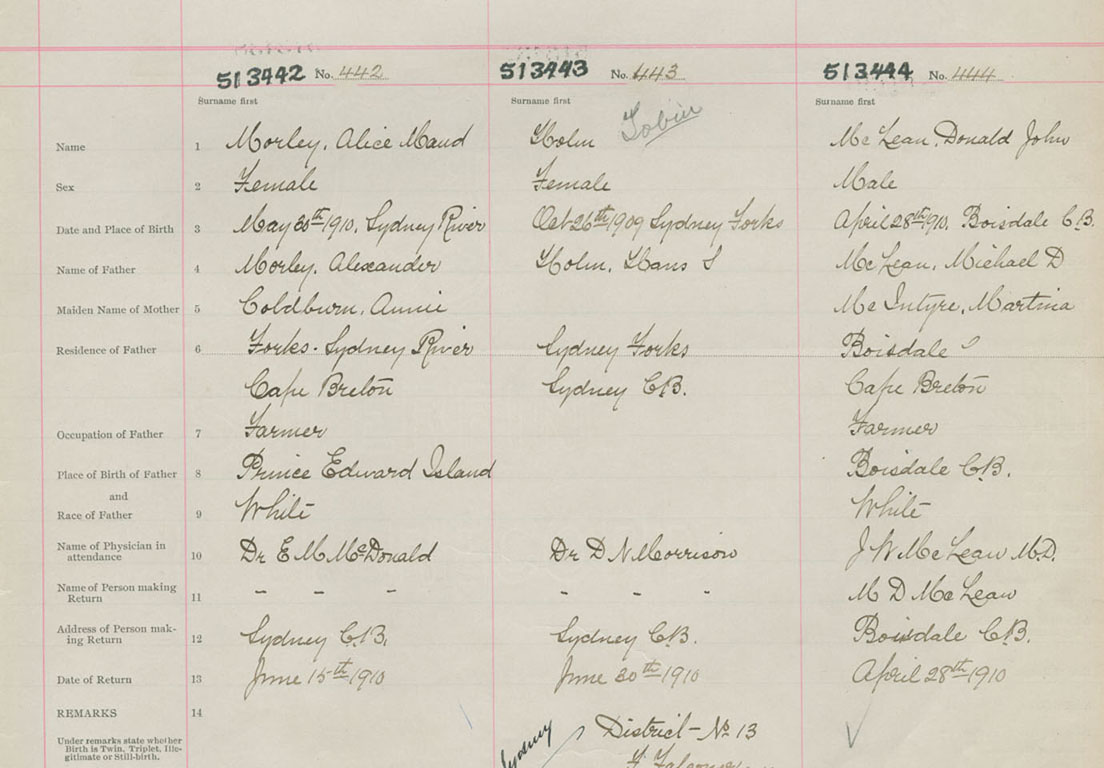 513442 No. 442
513443 No. 443
513444 No. 444
Surname first
Surname first
Surname first
Tobin
Name 1 Morley, Alice Maud Holm McLean, Donald John
Sex 2 Female Female Male
Date and Place of Birth 3 May 30th 1910, Sydney River Oct 26th 1909 Sydney Forks April 28th 1910, Boisdale C.B.
Name of Father 4 Morley, Alexander Holm, Hans S McLean, Michael D
Maiden Name of Mother 5 Coldburn, Annie McIntyre, Martina
Residence of Father 6 Forks - Sydney River Sydney Forks Boisdale
Cape Breton Sydney C.B. Cape Breton
Occupation of Father 7 Farmer Farmer
Place of Birth of Father 8 Prince Edward Island Boisdale C.B.
and
Race of Father 9 White White
Name of Physician in
attendance 10 Dr E M McDonald Dr D N Morrison J W McLean M.D.
Name of Person making
Return 11 - - - - - - M D McLean
Address of Person mak-
ing Return 12 Sydney C.B. Sydney C.B. Boisdale C.B.
Date of Return 13 June 15th 1910 June 30th 1910 April 28th 1910
REMARKS 14
Under remarks state whether
Birth is Twin, Triplet, Ille-
gitimate or Still-birth.
Sydney
District - No 13